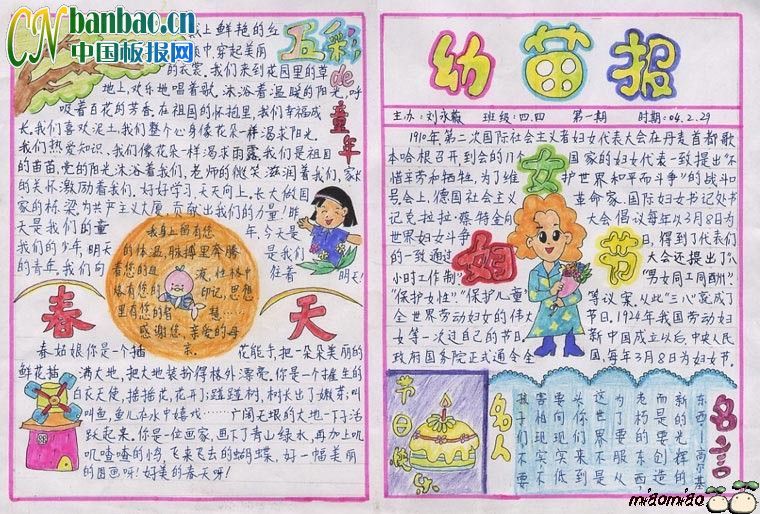 CN banbao.cn
中国板报网
五彩de童年
上鲜艳的红
中,穿起美丽
的衣裳。我们来到花园里的草
地上,欢乐地唱着歌,沐浴着温暖的阳光,呼
吸着百花的芳香。在祖国的怀抱里,我们幸福成
长。我们喜欢泥土,我们整个心身像花朵一样渴求阳光。
我们热爱知识,我们像花朵一样渴求雨露。我们是祖国
的苗苗,党的阳光沐浴着我们,老师的微笑滋润着我们,家长
的关怀激励着我们,好好学习,天天向上。长大做国
家的栋梁,为共产主义大厦,贡献出我们的力量!昨
天是我们的童年,今天是
我们的少年,明天是我们
的青年,我们向往着明天!
我身上留有您
的体温,脉搏里奔腾
着您的血液,性格中
烙有您的印记,思想
里有您的智慧…
感谢您,亲爱的母
亲。
春天
春姑娘你是一个描花能手,把一朵朵美丽的
鲜花描满大地,把大地装扮得格外漂亮。你是一个催生的
白衣天使,摇摇花,花开;碰碰树,树长出了嫩芽;叫
叫鱼,鱼儿在水中嬉戏……广阔无垠的大地一下子活
跃起来。你是一位画家,画下了青山绿水,再加上叽
叽喳喳的小鸟,飞来飞去的蝴蝶,好一幅美丽
的图画呀!好美的春天呀!
幼苗报
主办:刘永薇 班级:四.四 第一期 时期:04.2.29
1910年,第二次国际社会主义者妇女代表大会在丹麦首都歌
本哈根召开,到会的17个国家的妇女代表一致提出"不
惜辛劳和牺牲,为了维护世界和平而斗争"的战斗口
号。会上,德国社会主义革命家、国际妇女书记处书
记克拉拉·蔡特金向大会倡议每年以3月8日为
世界妇女斗争日,得到了代表们
的一致通过。大会还提出了八
小时工作制、"男女同工同酬"、
"保护女性"、"保护儿童"等议案。从此"三八"就成了
全世界劳动妇女的伟大节日,1924年我国劳动妇
女第一次过自己的节日。新中国成立以后,中央人民
政府国务院正式通令全国,每年3月8日为妇女节。
妇女节
节日快乐
名人名言
东西——高尔基
新的是要创造的
而光辉的
老朽的东西
为了
这世界不是
你们
头向现实低
要相信
害
孩子们不要
miaomiao